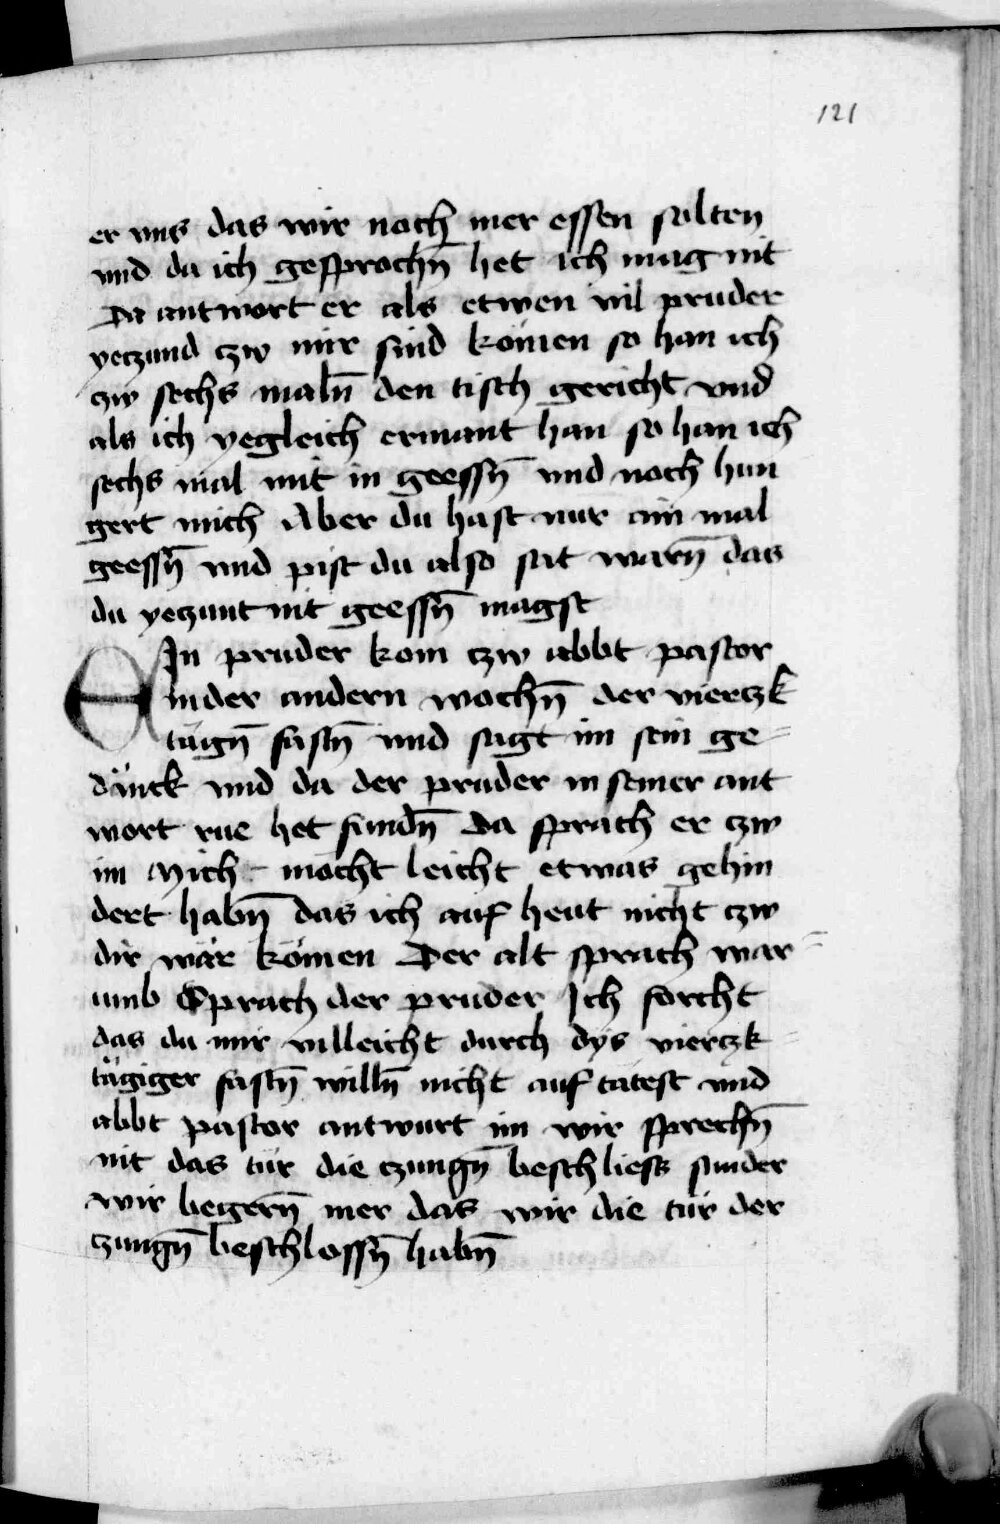 121
er vns das wir noch mer essen solten
vnd da ich gesprochn̄ het ich mag nit
Da antwort er als etwen vil pruder
yeczund czw mir sind kömen so han ich
czw sechs maln̄ den tisch gericht vnd
als ich yegleich ermant han so han ich
sechs mal mit in geessn̄ vnd noch hun
gert mich Aber du hast nur ain mal
geessn̄ vnd pist du also sat warn̄ das
du yeczunt nit geessn̄ magst
EIn pruder kom czw abbt pastor
in der andern wochn̄ der vierczk
tagn̄ fastn̄ vnd sagt im sein ge=
dänck vnd da der pruder in seiner ant
wort rue het fundn̄ Da sprach er czw
im Mich mocht leicht etwas gehin
dert habn̄ das ich auf heut nicht czw
dir wär kömen Der alt sprach war=
umb Sprach der pruder Ich forcht
das du mir villeicht durch dys vierczk=
tägiger fastn̄ willn̄ nicht auf tätest vnd
abbt pastor antwurt im wir sprechn̄
nit das tür die czungn̄ beschliess sunder
wir begern̄ mer das wir die tür der
czungn̄ beschlossn̄ habn̄